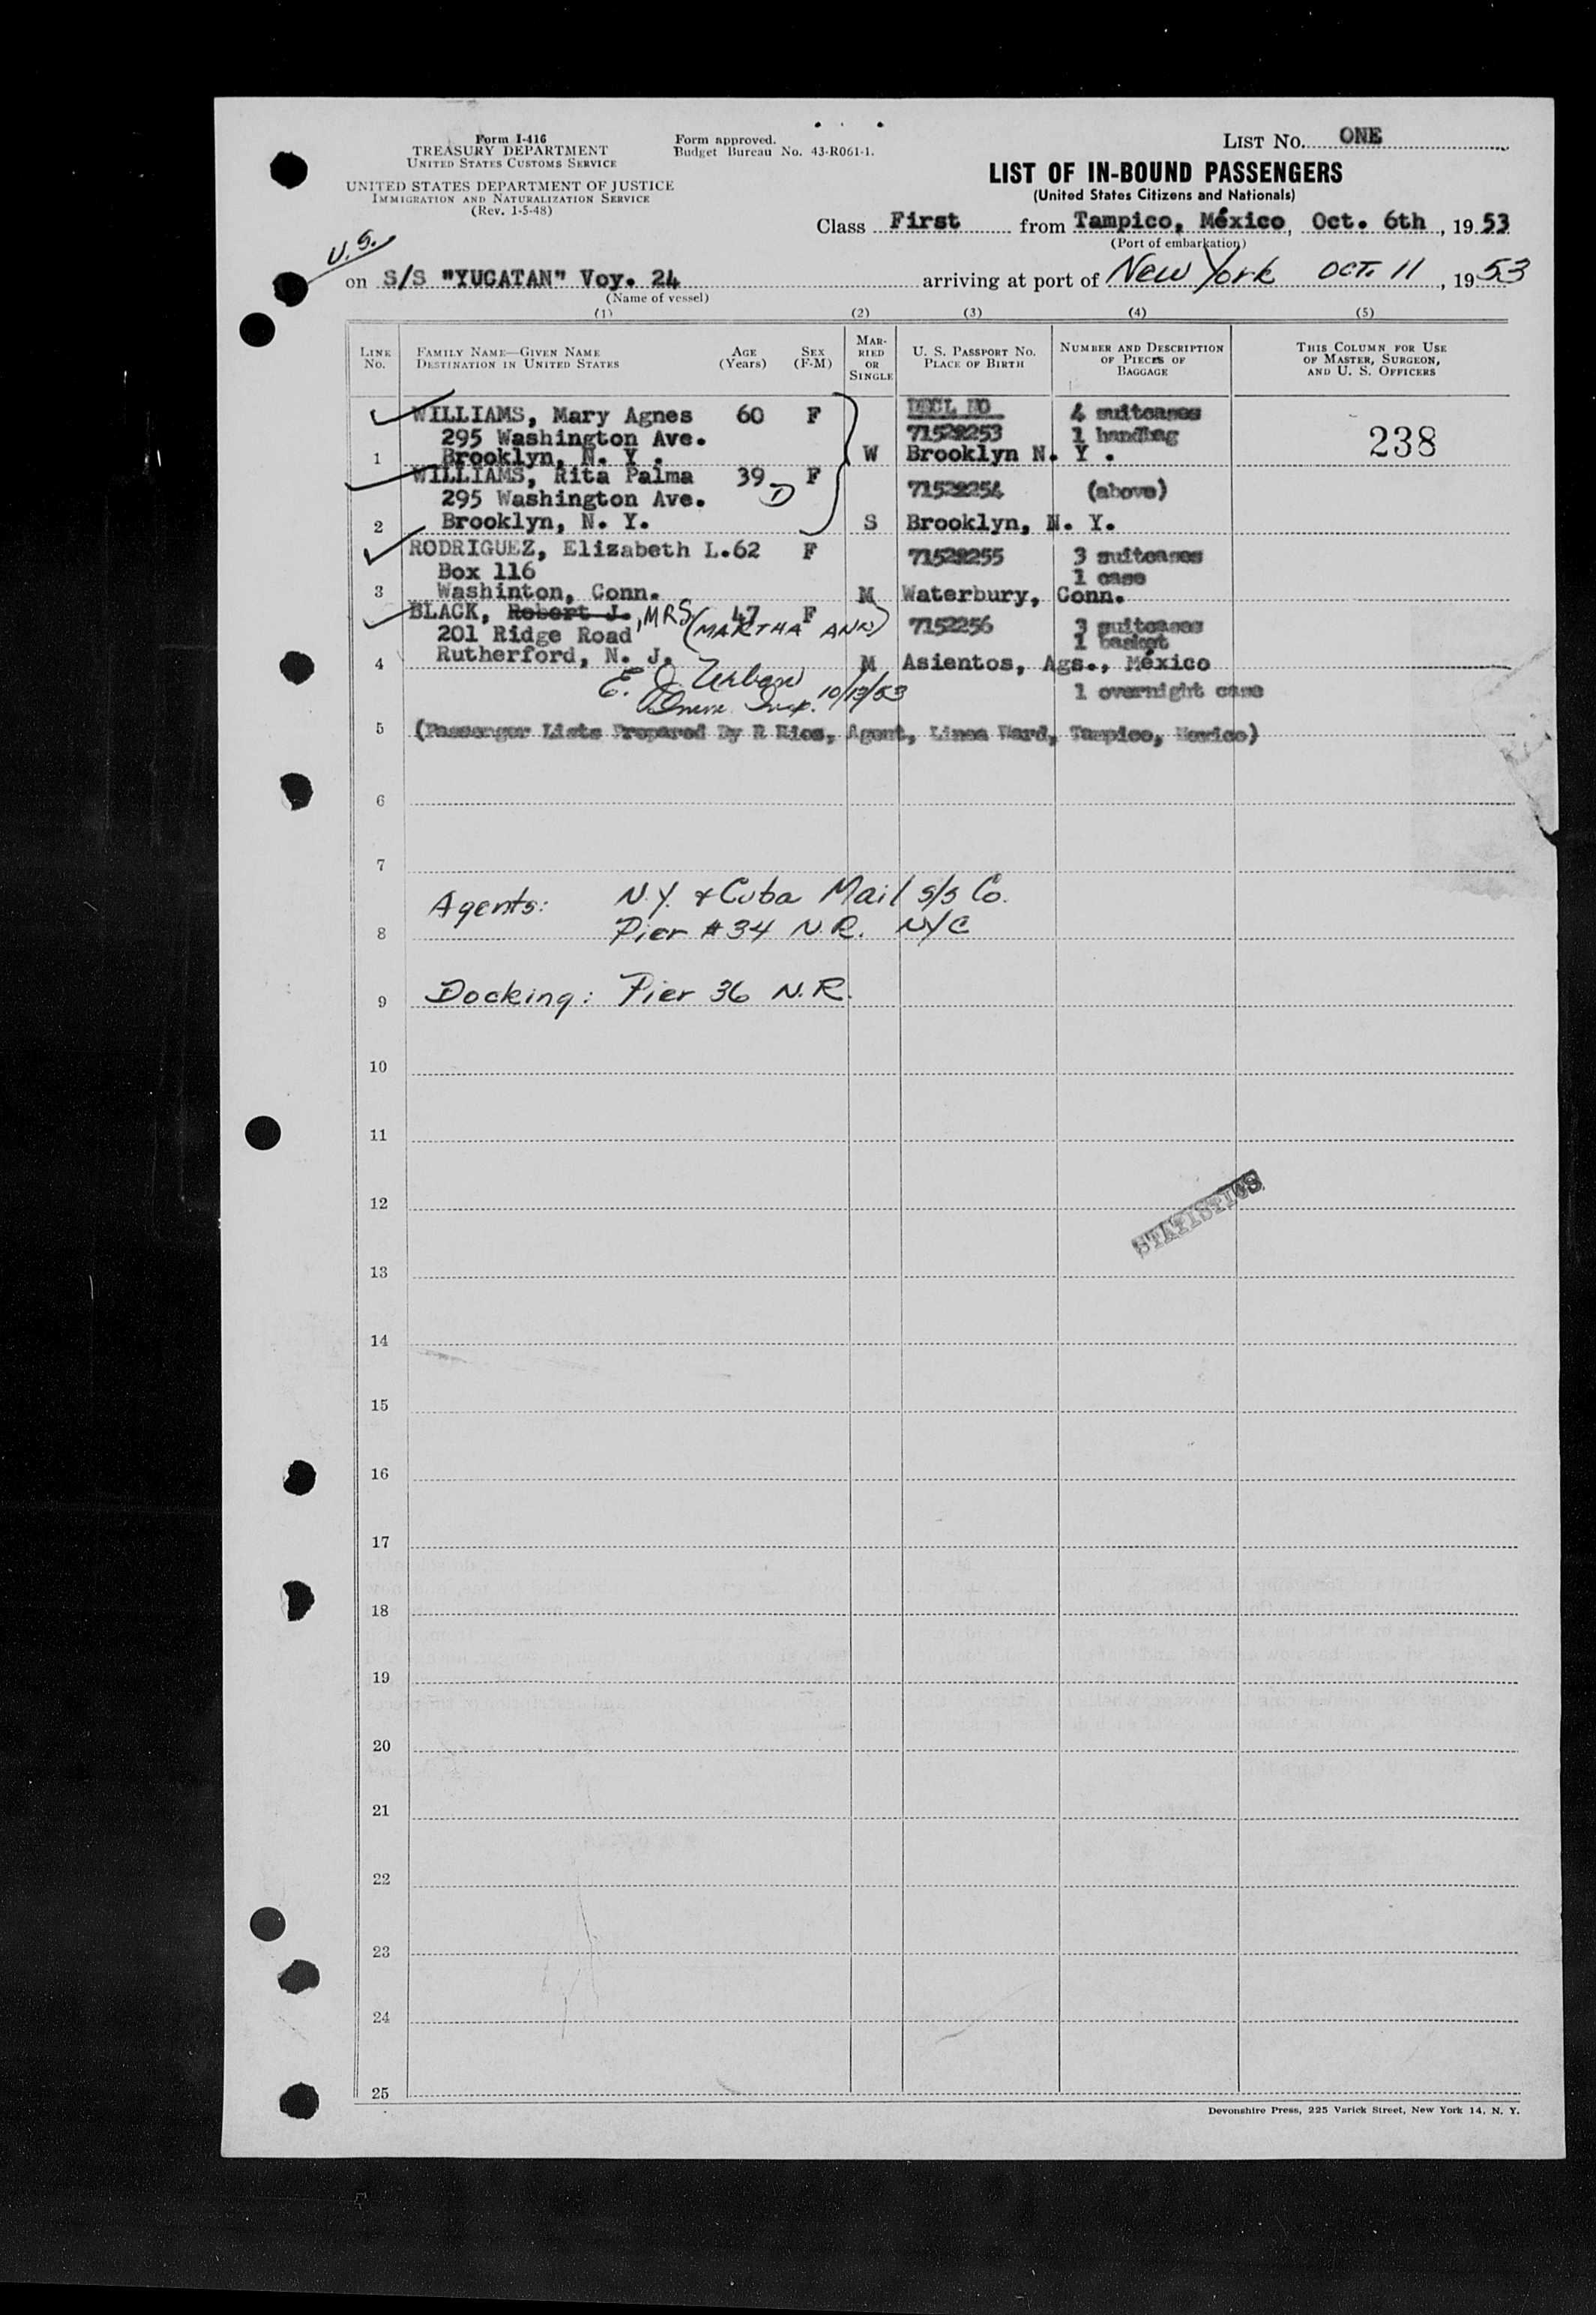 Form I-416
TREASURY DEPARTMENT
UNITED STATES CUSTOMS SERVICE
UNITED STATES DEPARTMENT OF JUSTICE
IMMIGRATION AND NATURALIZATION SERVICE
(Rev. 1-5-48)
Form approved.
Budget Bureau No. 43-R061-1.
LIST No. ONE
LIST OF IN-BOUND PASSENGERS
(United States Citizens and Nationals)
Class First from Tampico, México, Oct. 6th, 1953
(Port of embarkation)
U.S.
on S/S "YUCATAN" Voy. 24 arriving at port of New York OCT. 11, 1953
(Name of vessel)
(1) (2) (3) (4) (5)
LINE No.
FAMILY NAME—GIVEN NAME
DESTINATION IN UNITED STATES
AGE (Years)
SEX (F-M)
MARRIED OR SINGLE
U. S. PASSPORT NO.
PLACE OF BIRTH
NUMBER AND DESCRIPTION OF PIECES OF BAGGAGE
THIS COLUMN FOR USE OF MASTER, SURGEON, AND U. S. OFFICERS
WILLIAMS, Mary Agnes 60 F DECL NO 4 suitcases
295 Washington Ave. 71528253 1 handbag 238
1 Brooklyn, N. Y . W Brooklyn N. Y .
WILLIAMS, Rita Palma 39 F 71528254 (above)
295 Washington Ave. D
2 Brooklyn, N. Y. S Brooklyn, N. Y.
RODRIGUEZ, Elizabeth L. 62 F 71528255 3 suitcases
Box 116 1 case
3 Washinton, Conn. M Waterbury, Conn.
BLACK, Robert J., MRS (MARTHA ANN) 47 F 7152256 3 suitcases
201 Ridge Road 1 basket
4 Rutherford, N. J. M Asientos, Ags., México
E. J. Urban 10/13/53 1 overnight case
Imm. Insp.
5 (Passenger Lists Prepared By R Rios, Agent, Linea Ward, Tampico, Mexico)
6
7
Agents: N.Y. & Cuba Mail S/S Co.
8 Pier #34 N.R. NYC
9 Docking: Pier 36 N.R.
10
11
12
STATISTICS
13
14
15
16
17
18
19
20
21
22
23
24
25
Devonshire Press, 225 Varick Street, New York 14, N. Y.